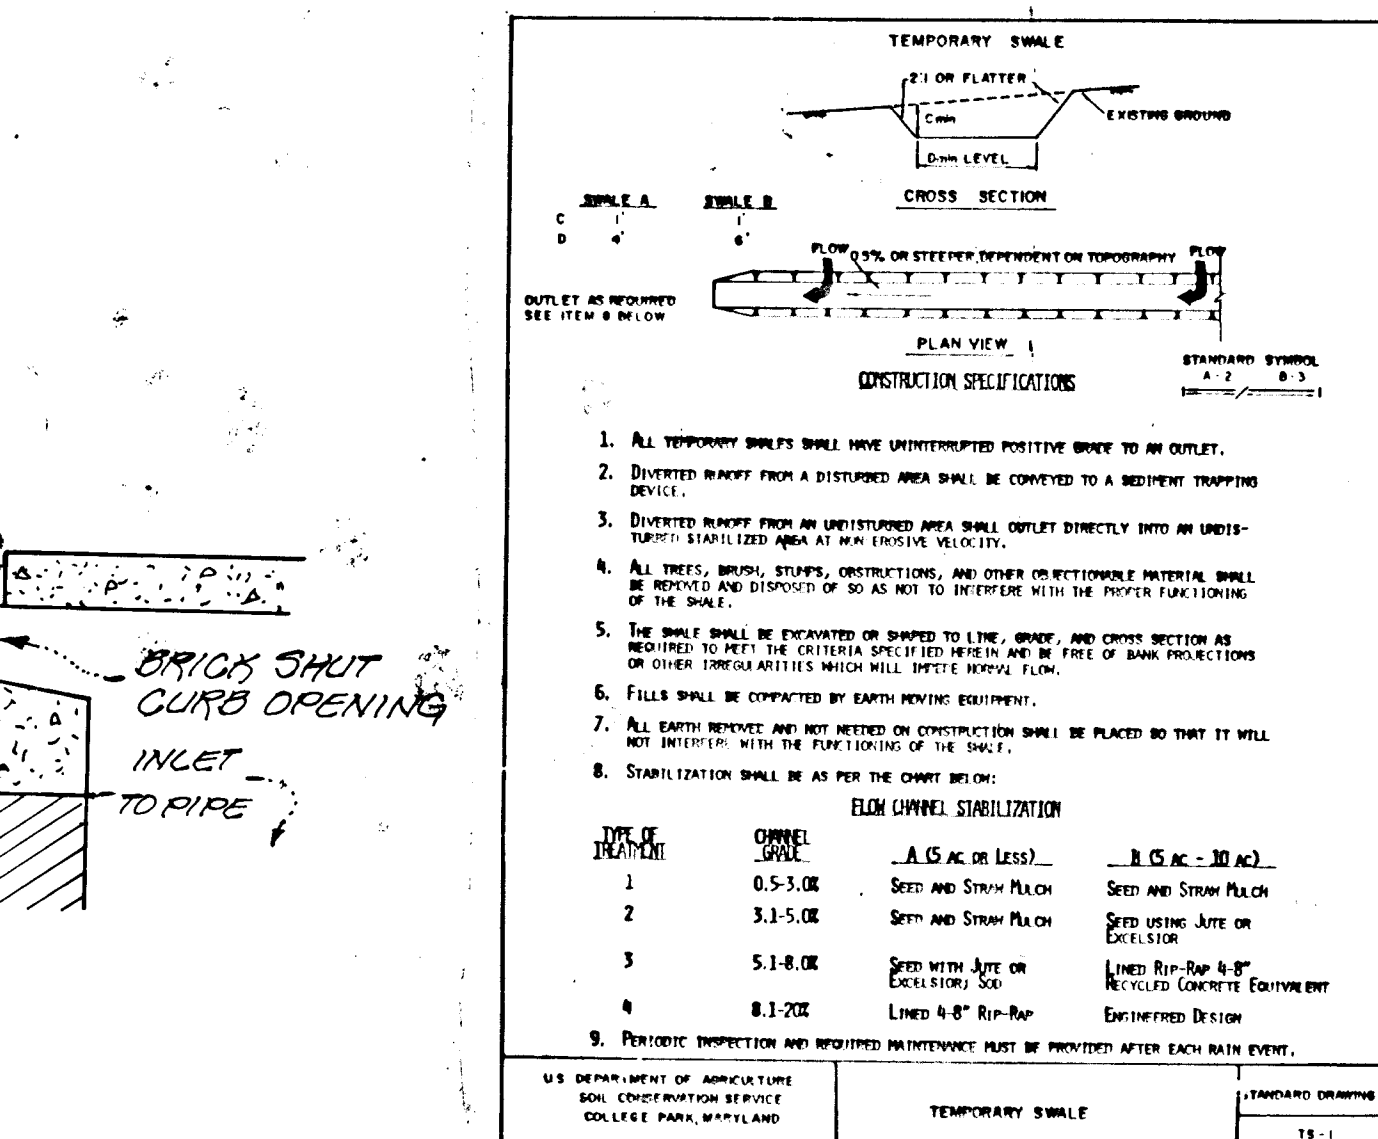 TEMPORARY SWALE
2:1 OR FLATTER
C min
EXISTING GROUND
D min LEVEL
CROSS SECTION
SWALE A SWALE B
C 1' 1'
D 4' 6'
FLOW 0.5% OR STEEPER, DEPENDENT ON TOPOGRAPHY FLOW
OUTLET AS REQUIRED
SEE ITEM 8 BELOW
PLAN VIEW
STANDARD SYMBOL
A-2 B-3
CONSTRUCTION SPECIFICATIONS
1. ALL TEMPORARY SWALES SHALL HAVE UNINTERRUPTED POSITIVE GRADE TO AN OUTLET.
2. DIVERTED RUNOFF FROM A DISTURBED AREA SHALL BE CONVEYED TO A SEDIMENT TRAPPING
DEVICE.
3. DIVERTED RUNOFF FROM AN UNDISTURBED AREA SHALL OUTLET DIRECTLY INTO AN UNDIS-
TURBED STABILIZED AREA AT NON EROSIVE VELOCITY.
4. ALL TREES, BRUSH, STUMPS, OBSTRUCTIONS, AND OTHER OBJECTIONABLE MATERIAL SHALL
BE REMOVED AND DISPOSED OF SO AS NOT TO INTERFERE WITH THE PROPER FUNCTIONING
OF THE SWALE.
5. THE SWALE SHALL BE EXCAVATED OR SHAPED TO LINE, GRADE, AND CROSS SECTION AS
REQUIRED TO MEET THE CRITERIA SPECIFIED HEREIN AND BE FREE OF BANK PROJECTIONS
OR OTHER IRREGULARITIES WHICH WILL IMPEDE NORMAL FLOW.
6. FILLS SHALL BE COMPACTED BY EARTH MOVING EQUIPMENT.
7. ALL EARTH REMOVED AND NOT NEEDED ON CONSTRUCTION SHALL BE PLACED SO THAT IT WILL
NOT INTERFERE WITH THE FUNCTIONING OF THE SWALE.
8. STABILIZATION SHALL BE AS PER THE CHART BELOW:
FLOW CHANNEL STABILIZATION
TYPE OF TREATMENT CHANNEL GRADE A (5 AC OR LESS) B (5 AC - 10 AC)
1 0.5-3.0% SEED AND STRAW MULCH SEED AND STRAW MULCH
2 3.1-5.0% SEED AND STRAW MULCH SEED USING JUTE OR
EXCELSIOR
3 5.1-8.0% SEED WITH JUTE OR LINED RIP-RAP 4-8"
EXCELSIOR; SOD RECYCLED CONCRETE EQUIVALENT
4 8.1-20% LINED 4-8" RIP-RAP ENGINEERED DESIGN
9. PERIODIC INSPECTION AND REQUIRED MAINTENANCE MUST BE PROVIDED AFTER EACH RAIN EVENT.
U.S. DEPARTMENT OF AGRICULTURE
SOIL CONSERVATION SERVICE
COLLEGE PARK, MARYLAND
TEMPORARY SWALE
STANDARD DRAWING
TS-1
BRICK SHUT
CURB OPENING
INLET
TO PIPE